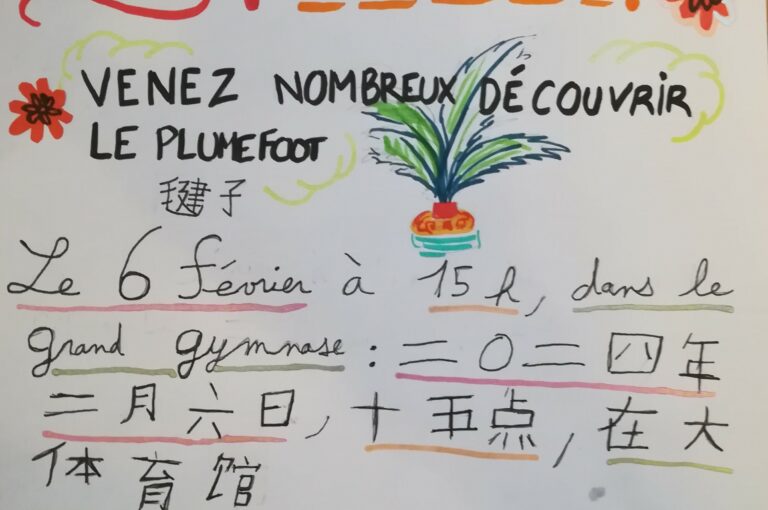 VENEZ NOMBREUX DÉCOUVRIR
LE PLUMEFOOT
毽子
Le 6 février à 15 h, dans le
grand gymnase : 二〇二四年
二月六日，十五点，在大
体育馆